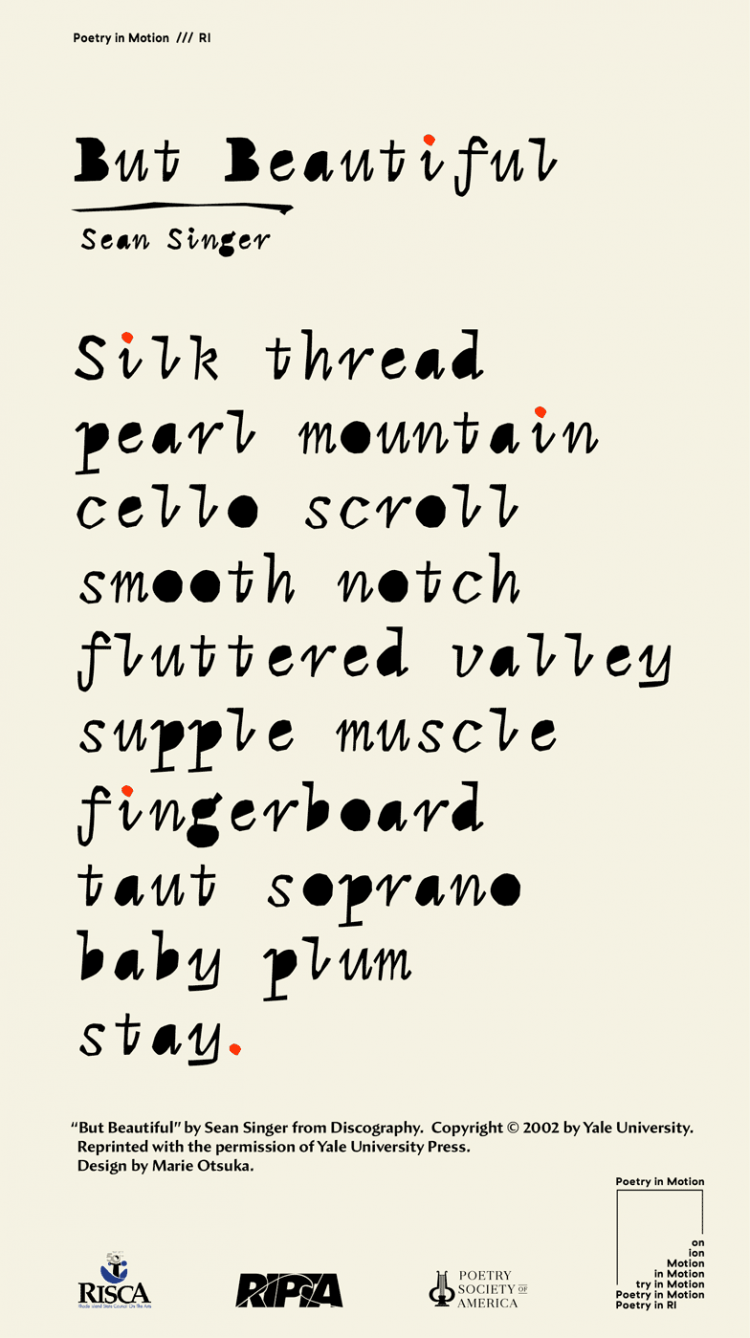 Poetry in Motion /// RI
But Beautiful
Sean Singer
Silk thread
pearl mountain
cello scroll
smooth notch
fluttered valley
supple muscle
fingerboard
taut soprano
baby plum
stay.
“But Beautiful” by Sean Singer from Discography. Copyright © 2002 by Yale University.
Reprinted with the permission of Yale University Press.
Design by Marie Otsuka.
RISCA
Rhode Island State Council On The Arts
RIPTA
POETRY
SOCIETY OF
AMERICA
Poetry in Motion
on
ion
Motion
in Motion
try in Motion
Poetry in Motion
Poetry in RI